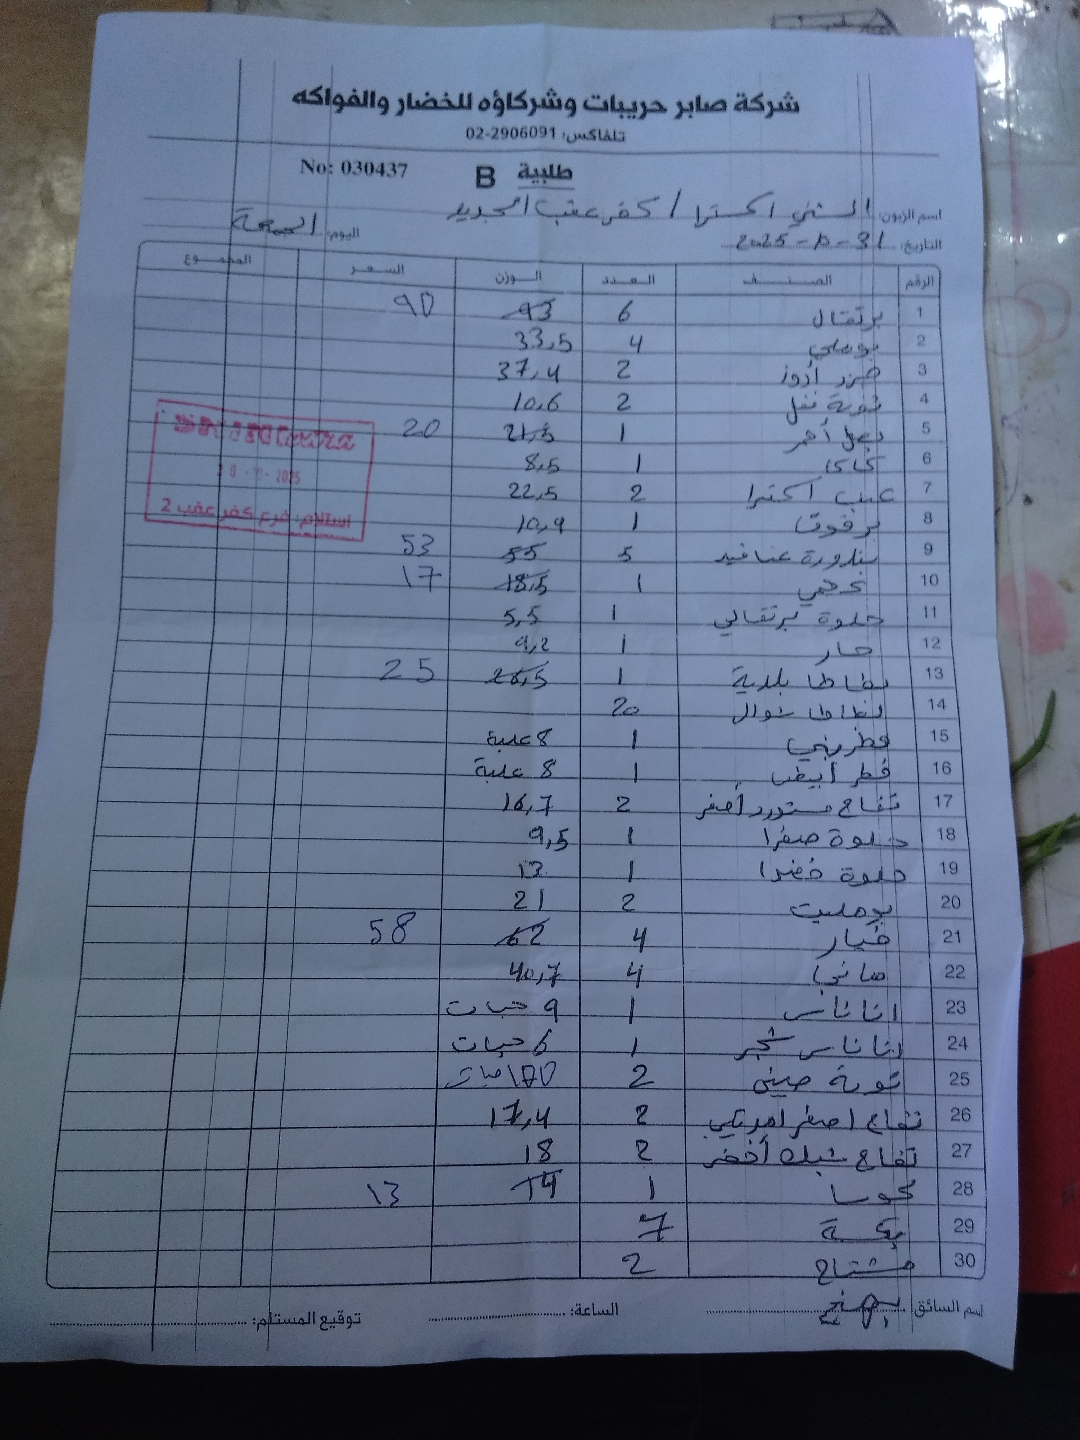 شركة صابر حريبات وشركاؤه للخضار والفواكه
تلفاكس: 02-2906091
No: 030437 B طلبية
اسم الزبون: السني اكسترا / كفر عقب الجديد
التاريخ: 31-10-2025 اليوم: الجمعة
الرقم الصنف العدد الوزن السعر المجموع
1 برتقال 6 93 90
2 بوملي 4 33,5
3 2 37,4
4 2 10,6
5 بصل أحمر 1 21,5 20
6 كاكا 1 8,5
7 عنب اكسترا 2 22,5
8 برقوق 1 10,9
9 بندورة عناقيد 5 55 53
10 عجمي 1 18,5 17
11 حلوة برتقالي 1 5,5
12 حار 1 9,2
13 بطاطا بلدية 1 26,5 25
14 بطاطا شوال 20
15 فطر بني 1 8 علبة
16 فطر أبيض 1 8 علبة
17 تفاح مستورد أصفر 2 16,7
18 حلوة صفرا 1 9,5
19 حلوة خضرا 1 13
20 بومليت 2 21
21 خيار 4 62 58
22 4 40,7
23 اناناس 1 9 حبات
24 اناناس شجر 1 6 حبات
25 ثومة صيني 2
26 تفاح اصفر امريكي 2 17,4
27 تفاح شلك أخضر 2 18
28 كوسا 1 14 13
29 7
30 مشتاح 2
استلام: فرع كفر عقب 2
اسم السائق: الساعة: توقيع المستلم: